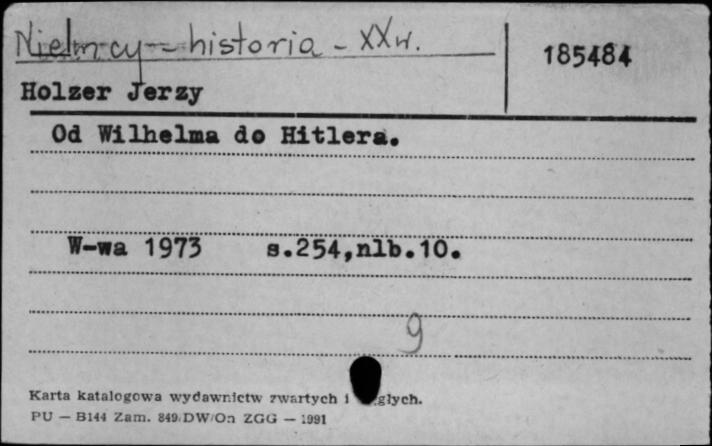 Niemcy - historia - XXw.
185484
Holzer Jerzy
Od Wilhelma do Hitlera.
W-wa 1973 s.254,nlb.10.
9
Karta katalogowa wydawnictw zwartych i
PU — B144 Zam. 849/DW/On ZGG — 1991